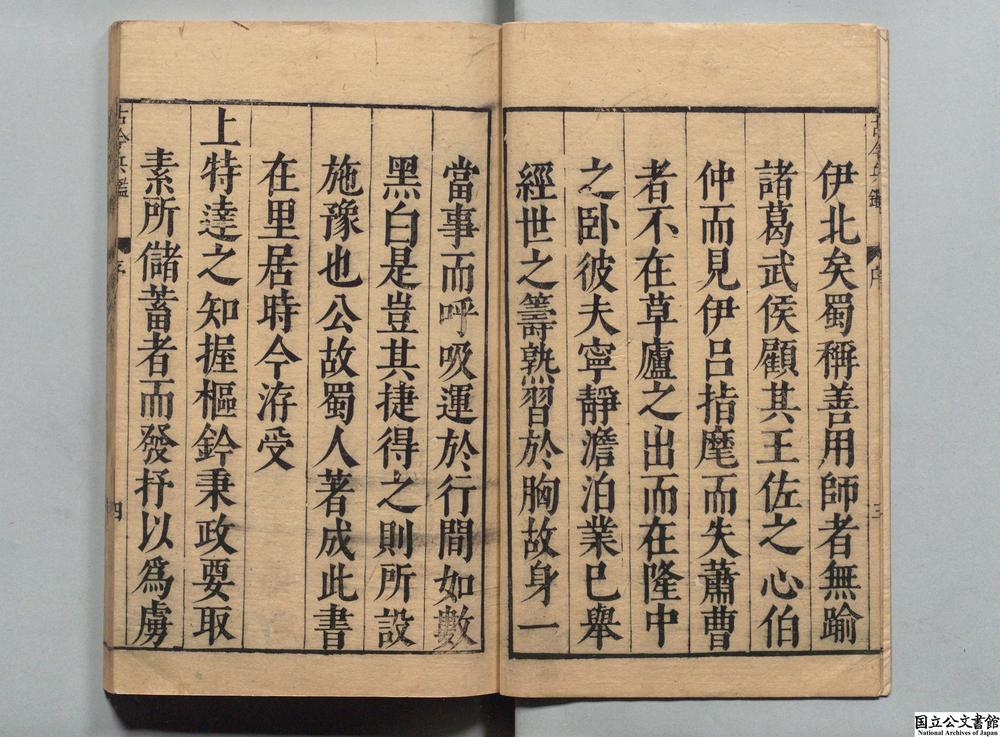 古今兵鑑 序 三
伊北矣蜀稱善用師者無踰
諸葛武侯顧其王佐之心伯
仲而見伊呂指麾而失蕭曹
者不在草廬之出而在隆中
之卧彼夫寧靜澹泊業已舉
經世之籌熟習於胸故身一
當事而呼吸運於行間如數
黑白是豈其捷得之則所設
施豫也公故蜀人著成此書
在里居時今洊受
上特達之知握樞鈐秉政要取
素所儲蓄者而發抒以爲虜
古今兵鑑 序 四
国立公文書館
National Archives of Japan